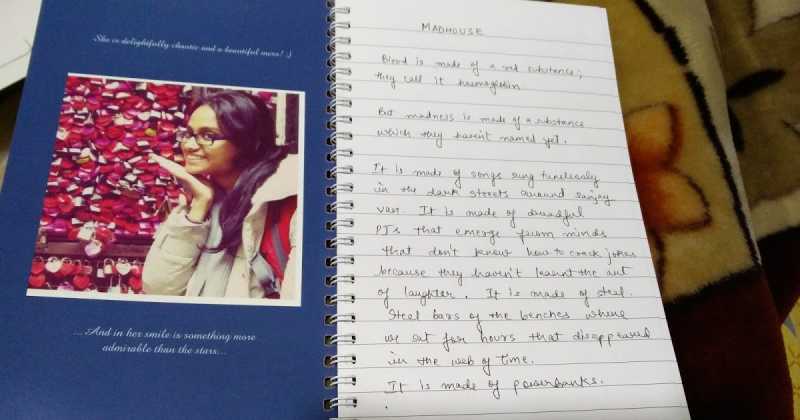 She is delightfully chaotic and a beautiful mess! :)
... And in her smile is something more
admirable than the stars...
MADHOUSE
Blood is made of a red substance;
they call it haemoglobin
But madness is made of a substance
which they haven't named yet.
It is made of songs sung tunelessly
in the dark streets around sanjay
van. It is made of dreadful
PJs that emerge from minds
that don't know how to crack jokes
because they haven't learnt the art
of laughter. It is made of steel.
Steel bars of the benches where
we sat for hours that disappeared
in the web of time.
It is made of powerbanks.